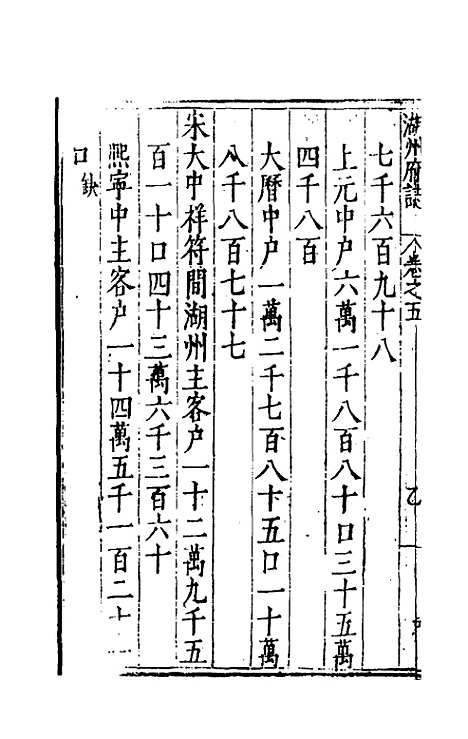 湖州府誌 卷之五 乙
七千六百九十八
上元中户六萬一千八百八十口三十五萬
四千八百
大曆中户一萬二千七百八十五口一十萬
八千八百七十七
宋大中祥符間湖州主客户一十二萬九千五
百一十口四十三萬六千三百六十
熙寧中主客户一十四萬五千一百二十
口缺